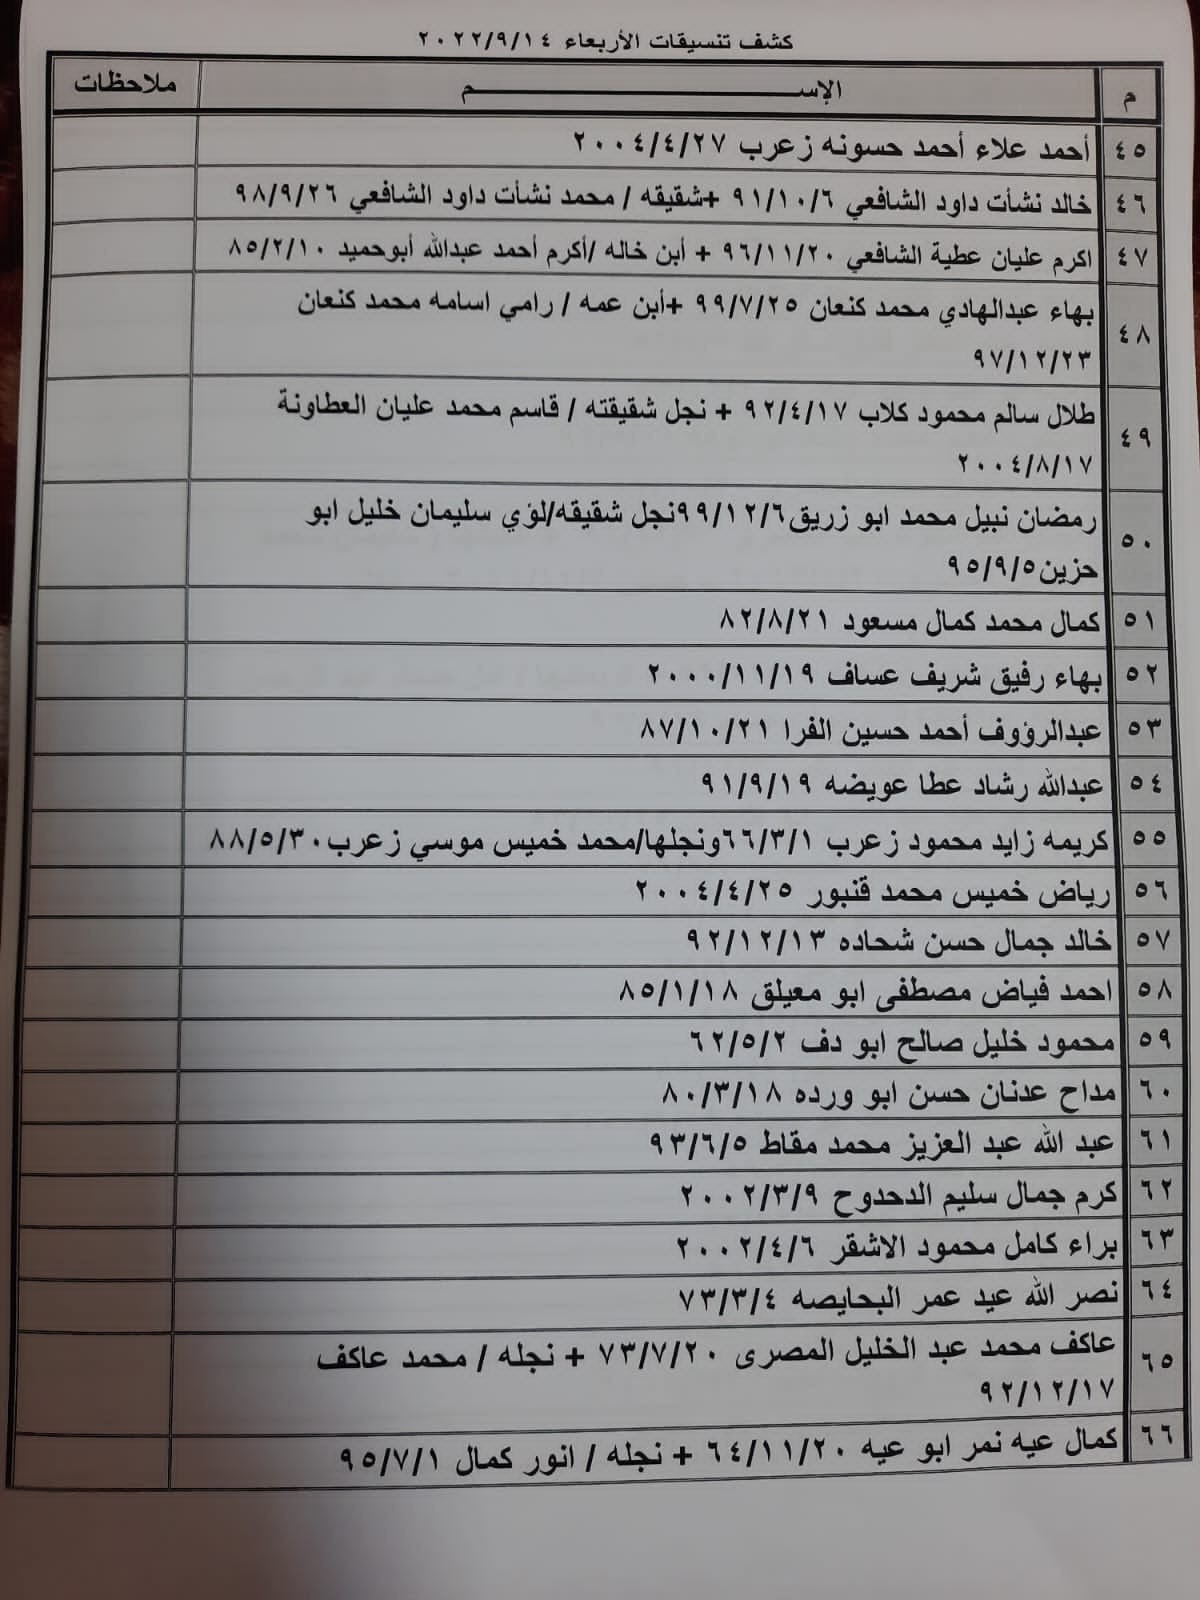 كشف تنسيقات الأربعاء ٢٠٢٢/٩/١٤
م الإســـــــــــم ملاحظات
٤٥ أحمد علاء أحمد حسونه زعرب ٢٠٠٤/٤/٢٧
٤٦ خالد نشأت داود الشافعي ٩١/١٠/٦ +شقيقه / محمد نشأت داود الشافعي ٩٨/٩/٢٦
٤٧ اكرم عليان عطية الشافعي ٩٦/١١/٢٠ + أبن خاله /أكرم أحمد عبدالله أبوحميد ٨٥/٢/١٠
٤٨ بهاء عبدالهادي محمد كنعان ٩٩/٧/٢٥ +أبن عمه / رامي اسامه محمد كنعان
٩٧/١٢/٢٣
٤٩ طلال سالم محمود كلاب ٩٢/٤/١٧ + نجل شقيقته / قاسم محمد عليان العطاونة
٢٠٠٤/٨/١٧
٥٠ رمضان نبيل محمد ابو زريق٩٩/١٢/٦نجل شقيقه/لؤي سليمان خليل ابو
حزين٩٥/٩/٥
٥١ كمال محمد كمال مسعود ٨٢/٨/٢١
٥٢ بهاء رفيق شريف عساف ٢٠٠٠/١١/١٩
٥٣ عبدالرؤوف أحمد حسين الفرا ٨٧/١٠/٢١
٥٤ عبدالله رشاد عطا عويضه ٩١/٩/١٩
٥٥ كريمه زايد محمود زعرب ٦٦/٣/١ونجلها/محمد خميس موسي زعرب٨٨/٥/٣٠
٥٦ رياض خميس محمد قنبور ٢٠٠٤/٤/٢٥
٥٧ خالد جمال حسن شحاده ٩٢/١٢/١٣
٥٨ احمد فياض مصطفى ابو معيلق ٨٥/١/١٨
٥٩ محمود خليل صالح ابو دف ٦٢/٥/٢
٦٠ مداح عدنان حسن ابو ورده ٨٠/٣/١٨
٦١ عبد الله عبد العزيز محمد مقاط ٩٣/٦/٥
٦٢ كرم جمال سليم الدحدوح ٢٠٠٢/٣/٩
٦٣ براء كامل محمود الاشقر ٢٠٠٢/٤/٦
٦٤ نصر الله عيد عمر البحايصه ٧٣/٣/٤
٦٥ عاكف محمد عبد الخليل المصرى ٧٣/٧/٢٠ + نجله / محمد عاكف
٩٢/١٢/١٧
٦٦ كمال عيه نمر ابو عيه ٦٤/١١/٢٠ + نجله / انور كمال ٩٥/٧/١